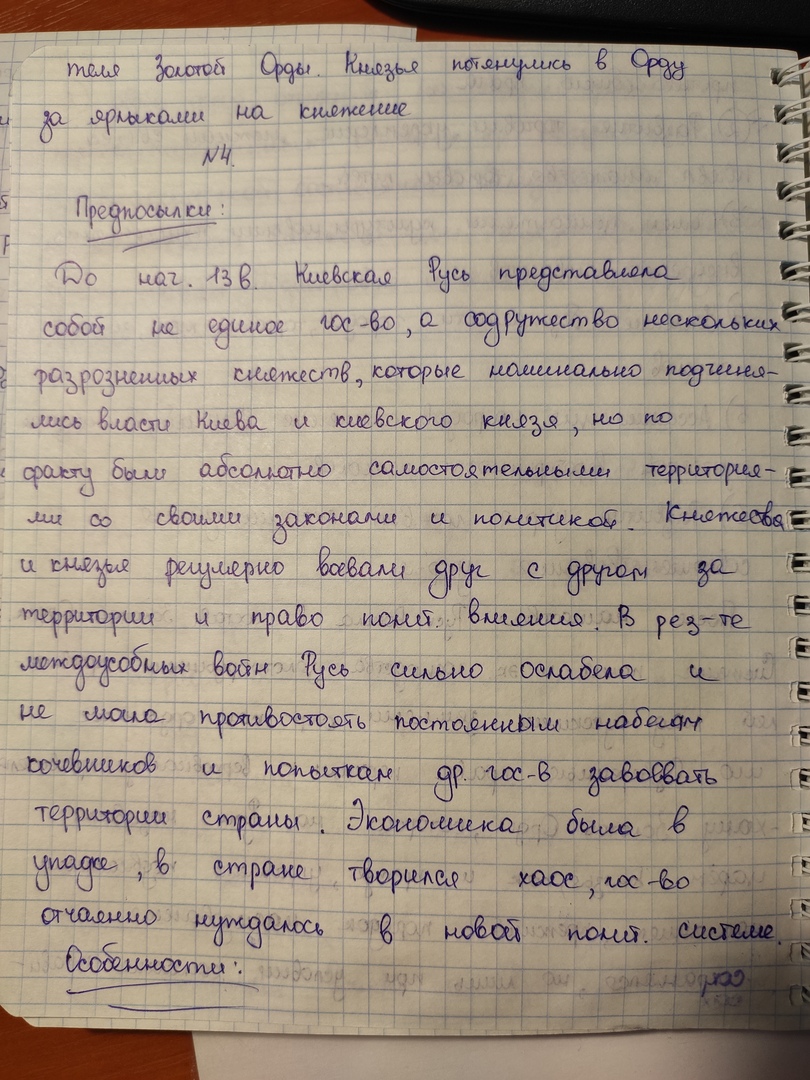 теля Золотой Орды. Князья потянулись в Орду
за ярлыками на княжение
№4.
Предпосылки:
До нач. 13 в. Киевская Русь представляла
собой не единое гос-во, а содружество нескольких
разрозненных княжеств, которые номинально подчиня-
лись власти Киева и киевского князя, но по
факту были абсолютно самостоятельными территория-
ми со своими законами и политикой. Княжества
и князья регулярно воевали друг с другом за
территории и право полит. влияния. В рез-те
междоусобных войн Русь сильно ослабела и
не могла противостоять постоянным набегам
кочевников и попыткам др. гос-в завоевать
территории страны. Экономика была в
упадке, в стране творился хаос, гос-во
отчаянно нуждалось в новой полит. системе.
Особенности: